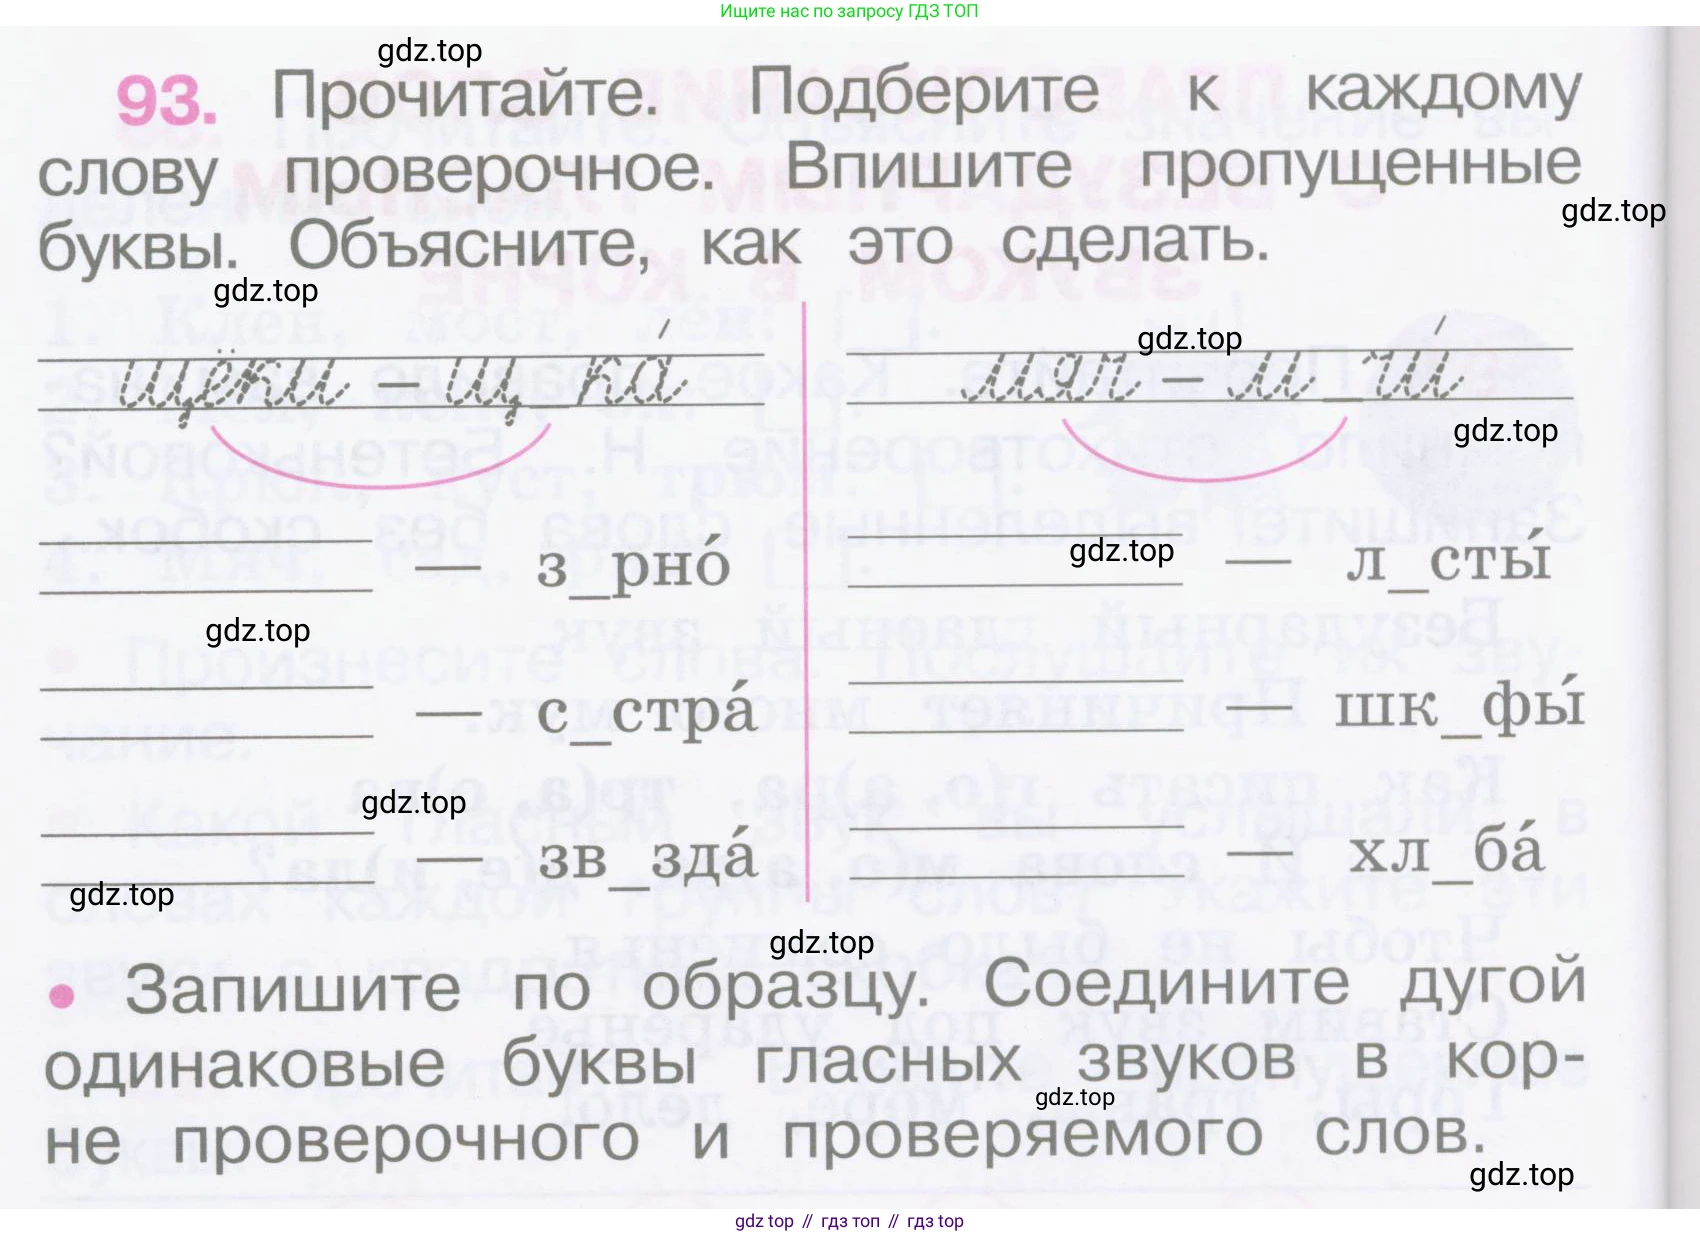 Ищите нас по запросу ГДЗ ТОП
gdz.top
93. Прочитайте. Подберите к каждому
слову проверочное. Впишите пропущенные
gdz.top
буквы. Объясните, как это сделать.
gdz.top
gdz.top
щёки – щ_ка́ мяч – м_чи́
gdz.top
gdz.top
— з_рно́ — л_сты́
gdz.top
— с_стра́ — шк_фы́
gdz.top
— зв_зда́ — хл_ба́
gdz.top
gdz.top
• Запишите по образцу. Соедините дугой
одинаковые буквы гласных звуков в кор-
gdz.top
не проверочного и проверяемого слов.
gdz.top
gdz top // гдз топ // гдз top